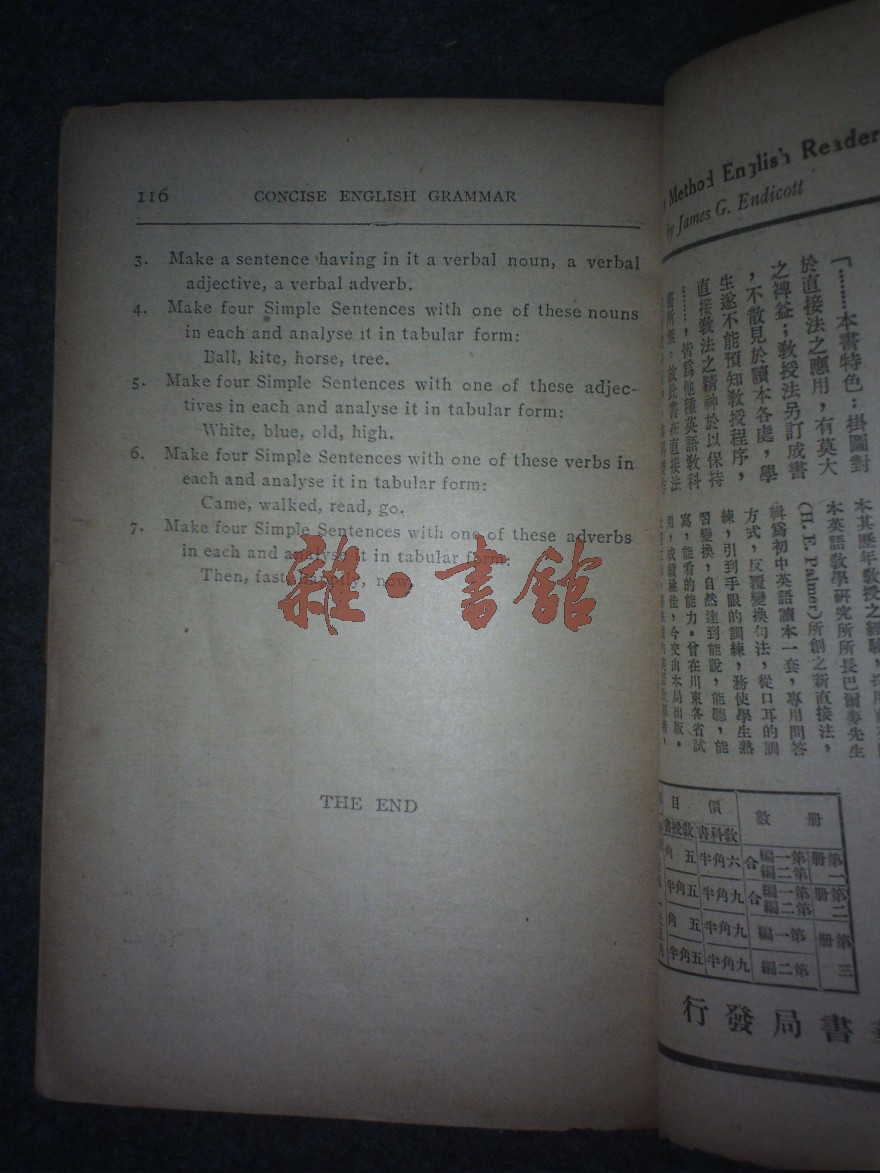 116 CONCISE ENGLISH GRAMMAR
3. Make a sentence having in it a verbal noun, a verbal
adjective, a verbal adverb.
4. Make four Simple Sentences with one of these nouns
in each and analyse it in tabular form:
Ball, kite, horse, tree.
5. Make four Simple Sentences with one of these adjec-
tives in each and analyse it in tabular form:
White, blue, old, high.
6. Make four Simple Sentences with one of these verbs in
each and analyse it in tabular form:
Came, walked, read, go.
7. Make four Simple Sentences with one of these adverbs
in each and analyse it in tabular form:
Then, fast, happily, now.
雜·書館
THE END
Method English Reader
by James G. Endicott
「……本書特色:掛圖對
於直接法之應用,有莫大
之裨益;教授法另訂成書
,不散見於讀本各處,學
生遂不能預知教授程序,
直接教法之精神於以保持
……,皆爲他種英語教科
書所無。故此書在直接法
本其歷年教授之經驗,採用
本英語教學研究所所長巴爾麥先生
(H. E. Palmer)所創之新直接法,
輯爲初中英語讀本一套,專用問答
方式,反覆變換句法,從口耳的訓
練,引到手眼的訓練,務使學生熟
習變換,自然達到能說,能聽,能
寫,能看的能力。曾在川東各省試
用,成績極佳,今交由本局出版。
册數 價目
教科書 教授書
第一册 第一編 第二編 合 六角半 五角
第二册 第一編 第二編 合 九角半 五角半
第三册 第一編 九角半 五角
第二編 九角半 五角半
書局發行